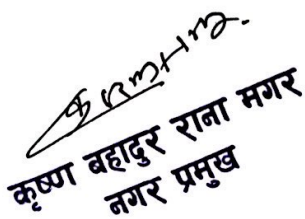 कृष्ण बहादुर राना मगर
नगर प्रमुख